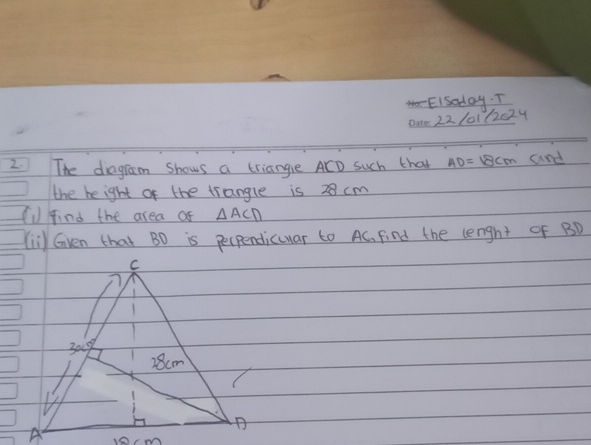 Elsaday.T
Date 22/01/2024
2 The diagram shows a triangle ACD such that AD= 18cm and
the height of the triangle is 28 cm
(i) find the area of △ACD
(ii) Given that BD is perpendicular to AC, find the lenght of BD
C
30cm
28cm
A
D
18cm